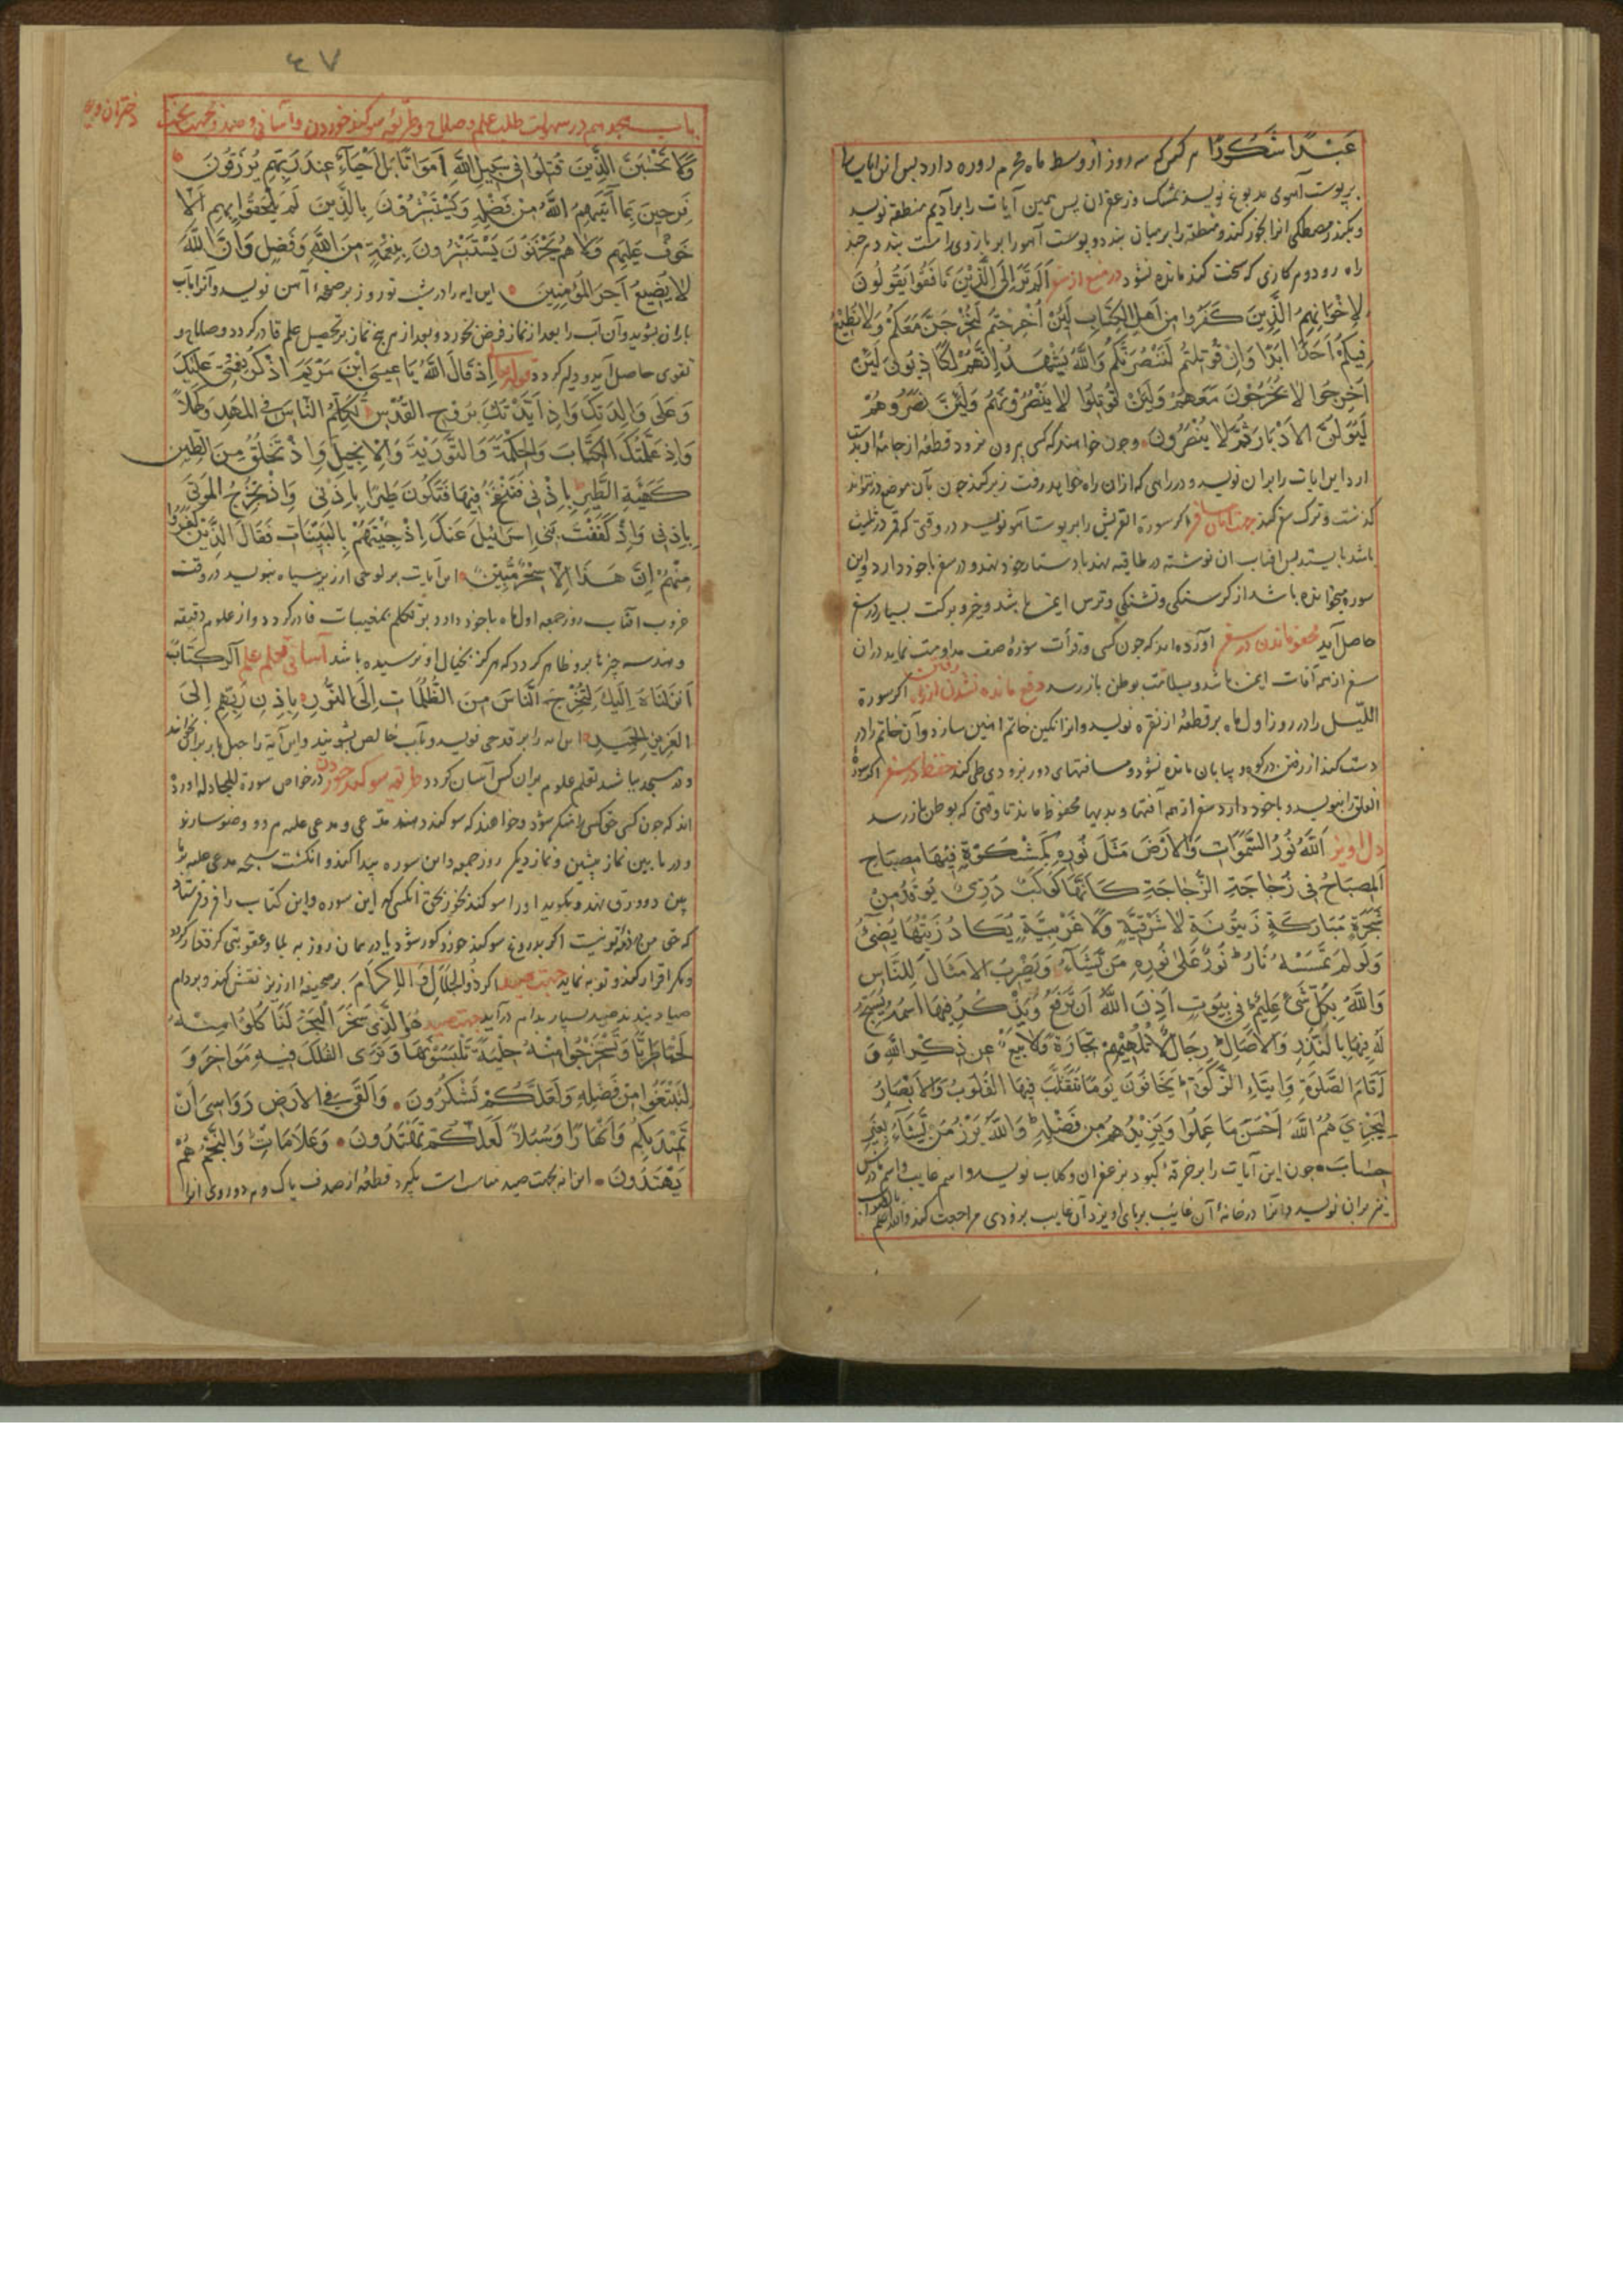 عَبْدًا شَكُورًا هر کس که سه روز از وسط ماه محرم روزه دارد پس این ایات را
بر پوست آهوی مدبوغ نویسد بمشک و زعفران پس همین آیات را بر آدیم منطقه نویسد
و بکندر و مصطکی انرا بخور کند و منطقه را بر میان بندد و پوست آهو را بر بازوی راست بندد هر چند
راه رود و هر کاری که سخت کند مانده نشود در منع از سفر اَلَمْ تَرَ اِلَى الَّذِيْنَ نَافَقُوا يَقُولُونَ
لِاِخْوَانِهِمُ الَّذِينَ كَفَرُوا مِنْ اَهْلِ الكِتَابِ لَئِنْ اُخْرِجْتُمْ لَنَخْرُجَنَّ مَعَكُمْ وَلَا نُطِيْعُ
فِيكُمْ اَحَدًا اَبَدًا وَاِنْ قُوتِلْتُمْ لَنَنْصُرَنَّكُمْ وَاللَّهُ يَشْهَدُ اِنَّهُمْ لَكَاذِبُونَ لَئِنْ
اُخْرِجُوا لَا يَخْرُجُوْنَ مَعَهُمْ وَلَئِنْ قُوتِلُوا لَا يَنْصُرُوْنَهُمْ وَلَئِنْ نَصَرُوهُمْ
لَيُوَلُّنَّ الاَدْبَارَ ثُمَّ لَا يُنْصَرُونَ وچون خواهند که کسی بیرون نرود قطعه از جامه او بدست
ارد این ایات را بر ان نویسد و در راهی که از ان راه خواهد رفت زیر کند چون بآن موضع در نتواند
کذشت و ترک سفر کند جهت آسانی سفر اکر سورة القریش را بر پوست آهو نویسد در وقتی که قمر در تثلیث
باشد بایستد پس افتاب ان نوشته در طاقیه نهد یا دستار خود نهد و در سفر با خود دارد و این
سوره میخوانده باشد از کرسنکی و تشنکی و ترس ایمن باشد و خیر و برکت بسیار در سفر
حاصل آید محفوظ ماندن در سفر آورده اند که چون کسی در قرأت سورۀ صف مداومت نماید در ان
سفر از همه آفات ایمن باشد و بسلامت بوطن باز رسد دفع مانده نشدن از راه رفتن اکر سورة
اللّیل را در روز اول ماه بر قطعۀ از نقره نویسد و از ان نکین خاتم امنین سازد و آن خاتم را در
دست کند از رفتن در کوه و بیابان مانده نشود و مسافتهای دور بزودی طی کند حفظ در سفر اکر سورة
الفلق را بنویسد و با خود دارد در سفر از همه آفتها و بدیها محفوظ ماند تا وقتی که بوطن باز رسد
اَللَّهُ نُورُ السَّمَوَاتِ وَالاَرْضِ مَثَلُ نُورِهِ كَمِشْكَوٰةٍ فِيْهَا مِصْبَاح
اَلمِصبَاحُ فِي زُجَاجَةٍ الزُّجَاجَةِ كَاَنَّهَا كَوْكَبٌ دُرِّيٌ يُوْقَدُ مِنْ
شَجَرَةٍ مُبَارَكَةٍ زَيتُونَةٍ لَا شَرْقِيَّةٍ وَلَا غَرْبِيَّةٍ يَكَادُ زَيْتُهَا يُضِيْٓءُ
وَلَو لَمْ تَمْسَسْهُ نَارٌ نُورٌ عَلَى نُورِهِ مَنْ يَشَاءُ وَيَضْرِبُ الاَمْثَالَ لِلنَّاسِ
وَاللَّهُ بِكُلِّ شَيْءٍ عَلِيمٌ فِي بُيُوتٍ اَذِنَ اللَّهُ اَنْ تُرْفَعَ وَيُذْكَرَ فِيهَا اسْمُهُ يُسَبِّحُ
لَهُ فِيْهَا بِالْغُدُوِّ وَالاٰصَالِ رِجَالٌ لَا تُلْهِيْهِمْ تِجَارَةٌ وَلَا بَيْعٌ عَن ذِكْرِ اللَّهِ وَ
اَقَامِ الصَّلٰوةِ وَاِيتَاءِ الزَّكٰوةِ يَخَافُونَ يَوْمًا تَتَقَلَّبُ فِيْهَا القُلُوبُ وَالاَبْصَارُ
لِيَجْزِيَهُمُ اللَّهُ اَحْسَنَ مَا عَمِلُوا وَيَزِيْدَهُمْ مِن فَضْلِهِ وَاللَّهُ يَرْزُقُ مَن يَشَاءُ بِغَيْرِ
حِسَابٍ چون این آیات را بر خرقۀ کبود بزعفران و کلاب نویسد و اسم غایب و اسم مادرش
نیز بر ان نویسد و انرا در خانۀ آن غایب بر پای آویزد آن غایب بزودی مراجعت کند والله اعلم بالصواب
٤٧
باب هجدهم در سهولت طلب علم و صلاح و طریقه سوکند خوردن و آسانی و صید و جهت بخت
دختران و غیره
وَلَا تَحْسَبَنَّ الَّذِينَ قُتِلُوا فِي سَبِيلِ اللَّهِ اَمْوَاتًا بَل اَحْيَآءٌ عِندَ رَبِّهِم يُرْزَقُونَ
فَرِحِينَ بِمَا اٰتَيٰهُمُ اللَّهُ مِنْ فَضْلِهِ وَيَسْتَبْشِرُوْنَ بِالَّذِينَ لَمْ يَلْحَقُوا بِهِم اَلَّا
خَوفٌ عَلَيهِم وَلَا هُمْ يَحْزَنُونَ يَسْتَبْشِرُونَ بِنِعْمَةٍ مِنَ اللَّهِ وَفَضْلٍ وَاَنَّ اللَّهَ
لَا يُضِيعُ اَجْرَ المُؤْمِنِينَ این ایه را در شب نوروز بر صفحۀ آهن نویسد و آنرا باب
باران بشوید و آن آب را بعد از نماز فرض بخورد و بعد از هر پنج نماز بر تحصیل علم قادر کردد و صلاح و
تقوی حاصل آید و دلیر کردد قوله تعالی اِذْ قَالَ اللَّهُ يَا عِيسَى ابْنَ مَرْيَمَ اذْكُرْ نِعْمَتِي عَلَيْكَ
وَعَلَى وَالِدَتِكَ وَاِذ اَيَّدْتُكَ بِرُوحِ القُدُسِ تُكَلِّمُ النَّاسَ فِي المَهْدِ وَكَهْلًا
وَاِذ عَلَّمْتُكَ الكِتَابَ وَالحِكْمَةَ وَالتَّوْرٰيةَ وَالاِنجِيلَ وَاِذْ تَخْلُقُ مِنَ الطِّينِ
كَهَيْئَةِ الطَّيْرِ بِاِذْنِي فَتَنْفُخُ فِيْهَا فَتَكُونُ طَيْرًا بِاِذْنِي وَاِذْ تُخْرِجُ المَوْتَى
بِاِذنِي وَاِذْ كَفَفْتُ بَنِي اِسْرَائِيْلَ عَنكَ اِذْ جِئْتَهُمْ بِالبَيِّنَاتِ فَقَالَ الَّذِيْنَ كَفَرُوا
مِنْهُمْ اِنْ هَذَا اِلَّا سِحْرٌ مُّبِيْنٌ این آیات بر لوحی ارزیز سیاه بنویسد در وقت
غروب افتاب روز جمعه اول ماه با خود دارد بر تکلم بمغیبات قادر کردد و از علوم دقیقه
و هندسه چیزها برو ظاهر کردد که هرکز بخیال او نرسیده باشد آسانی تعلم علم الر كِتَابٌ
اَنزَلنَاهُ اِلَيكَ لِتُخْرِجَ النَّاسَ مِنَ الظُّلُمَاتِ اِلَى النُّورِ بِاِذنِ رَبِّهِم اِلَى
العَزِيزِ الحَمِيدِ این ایه را بر قدحی نویسد و بآب خالص بشوید و این آیة را
تعلم علوم بران کس آسان کردد طریقه سوکند خوردن در خواص سورة المجادله آورده
اند که چون کسی حق کسی را منکر شود و خواهند که سوکند دهند مدعی و مدعی علیه هر دو وضو سازند
و در ما بین نماز پیشین و نماز دیکر روز جمعه و این سوره پیدا کند و انکشت سبحه مدعی علیه را
بین دو ورق نهد و بکوید او را سوکند بخور بحق آنکسی که این سوره و این کتاب را فرو فرستاد
که حق من نزد تو نیست اکر بدروغ سوکند خورد کور شود یا در همان روز به بلا و عقوبتی کرفتار کردد
و مکر اقرار کند و توبه نماید جهت صید اکر ذُو الجَلَالِ وَ الاِكرَامِ بر صحیفۀ ارزیز نقش کند و بر دام
صیاد بندد صید بسیار بدام درآید جهت صید هُوَ الَّذِي سَخَّرَ الْبَحْرَ لَنَا كُلُوا مِنْهُ
لَحْمًا طَرِيًّا وَتَسْتَخْرِجُوا مِنْهُ حِلْيَةً تَلْبَسُوْنَهَا وَتَرَى الفُلْكَ فِيْهِ مَوَاخِرَ وَ
لِتَبْتَغُوا مِنْ فَضْلِهِ وَلَعَلَّكُمْ تَشْكُرُونَ وَاَلْقَى فِي الاَرضِ رَوَاسِيَ اَنْ
تَمِيْدَ بِكُمْ وَاَنْهَارًا وَسُبُلًا لَعَلَّكُمْ تَهْتَدُونَ وَعَلَامَاتٍ وَالنَّجْمِ هُمْ
يَهْتَدُونَ این ایه بجهت صید مناسب است بکیرد قطعه از صدف پاک و هر دو روی انرا